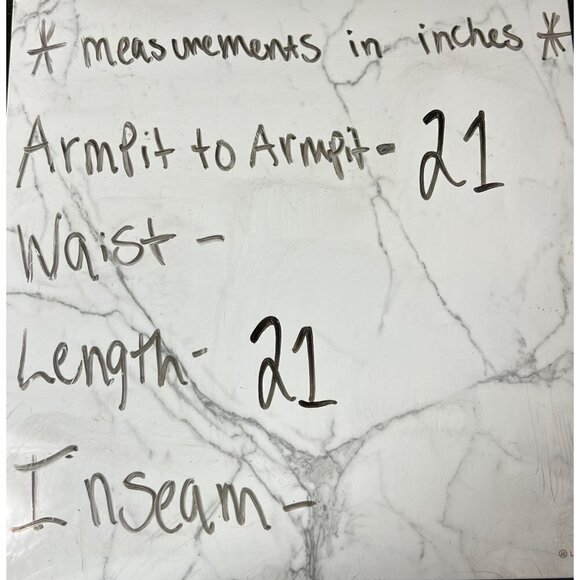 * measurements in inches *
Armpit to Armpit - 21
Waist -
Length - 21
Inseam -